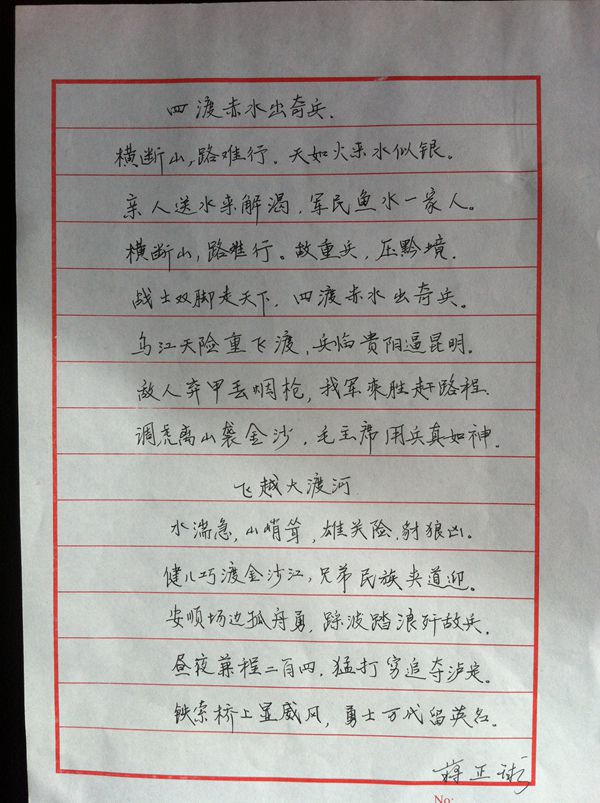 四渡赤水出奇兵.
横断山,路难行。天如火来水似银。
亲人送水来解渴,军民鱼水一家人。
横断山,路难行。敌重兵,压黔境.
战士双脚走天下,四渡赤水出奇兵。
乌江天险重飞渡,兵临贵阳逼昆明.
敌人弃甲丢烟枪,我军乘胜赶路程.
调虎离山袭金沙,毛主席用兵真如神.
飞越大渡河
水湍急,山峭耸,雄关险,豺狼凶。
健儿巧渡金沙江,兄弟民族夹道迎。
安顺场边孤舟勇,踩波踏浪歼敌兵.
昼夜兼程二百四,猛打穷追夺泸定。
铁索桥上显威风,勇士万代留英名.
蒋正
No: